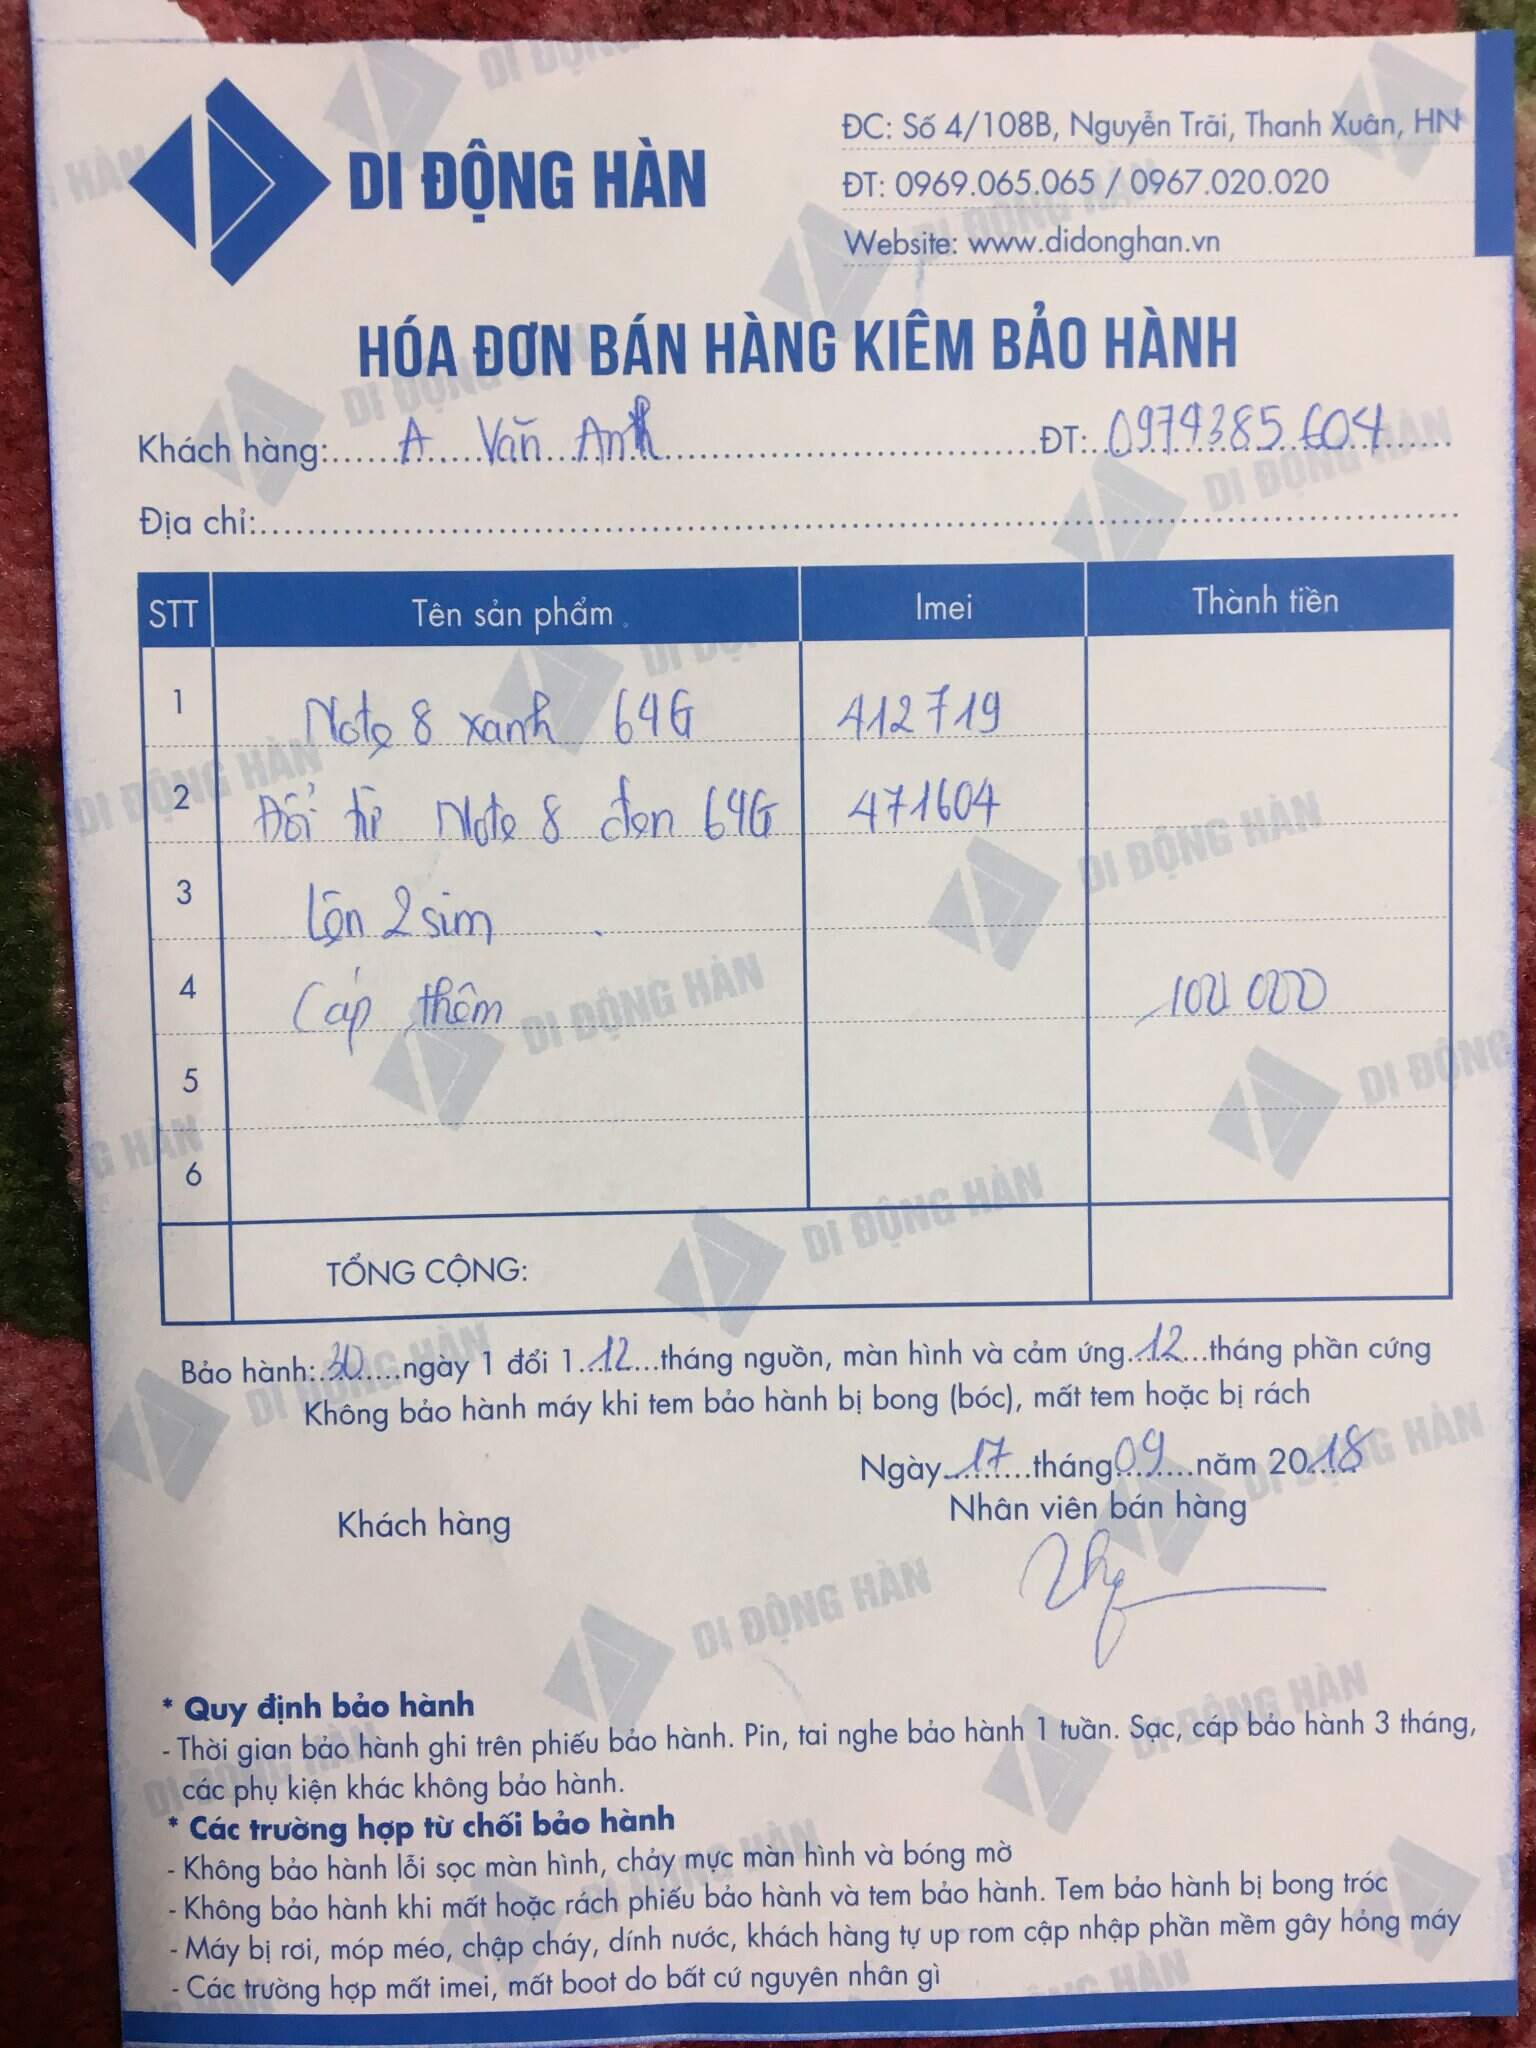 DI ĐỘNG HÀN
ĐC: Số 4/108B, Nguyễn Trãi, Thanh Xuân, HN
ĐT: 0969.065.065 / 0967.020.020
Website: www.didonghan.vn
HÓA ĐƠN BÁN HÀNG KIÊM BẢO HÀNH
Khách hàng: A Văn Anh ĐT: 0974385604
Địa chỉ:
STT Tên sản phẩm Imei Thành tiền
1 Note 8 xanh 64G 412719
2 Đổi từ Note 8 đen 64G 471604
3 lên 2 sim
4 Cáp thêm 100 000
5
6
TỔNG CỘNG:
Bảo hành: 30 ngày 1 đổi 1 12 tháng nguồn, màn hình và cảm ứng 12 tháng phần cứng
Không bảo hành máy khi tem bảo hành bị bong (bóc), mất tem hoặc bị rách
Ngày 17 tháng 09 năm 2018
Khách hàng Nhân viên bán hàng
* Quy định bảo hành
- Thời gian bảo hành ghi trên phiếu bảo hành. Pin, tai nghe bảo hành 1 tuần. Sạc, cáp bảo hành 3 tháng,
các phụ kiện khác không bảo hành.
* Các trường hợp từ chối bảo hành
- Không bảo hành lỗi sọc màn hình, chảy mực màn hình và bóng mờ
- Không bảo hành khi mất hoặc rách phiếu bảo hành và tem bảo hành. Tem bảo hành bị bong tróc
- Máy bị rơi, móp méo, chập cháy, dính nước, khách hàng tự up rom cập nhập phần mềm gây hỏng máy
- Các trường hợp mất imei, mất boot do bất cứ nguyên nhân gì